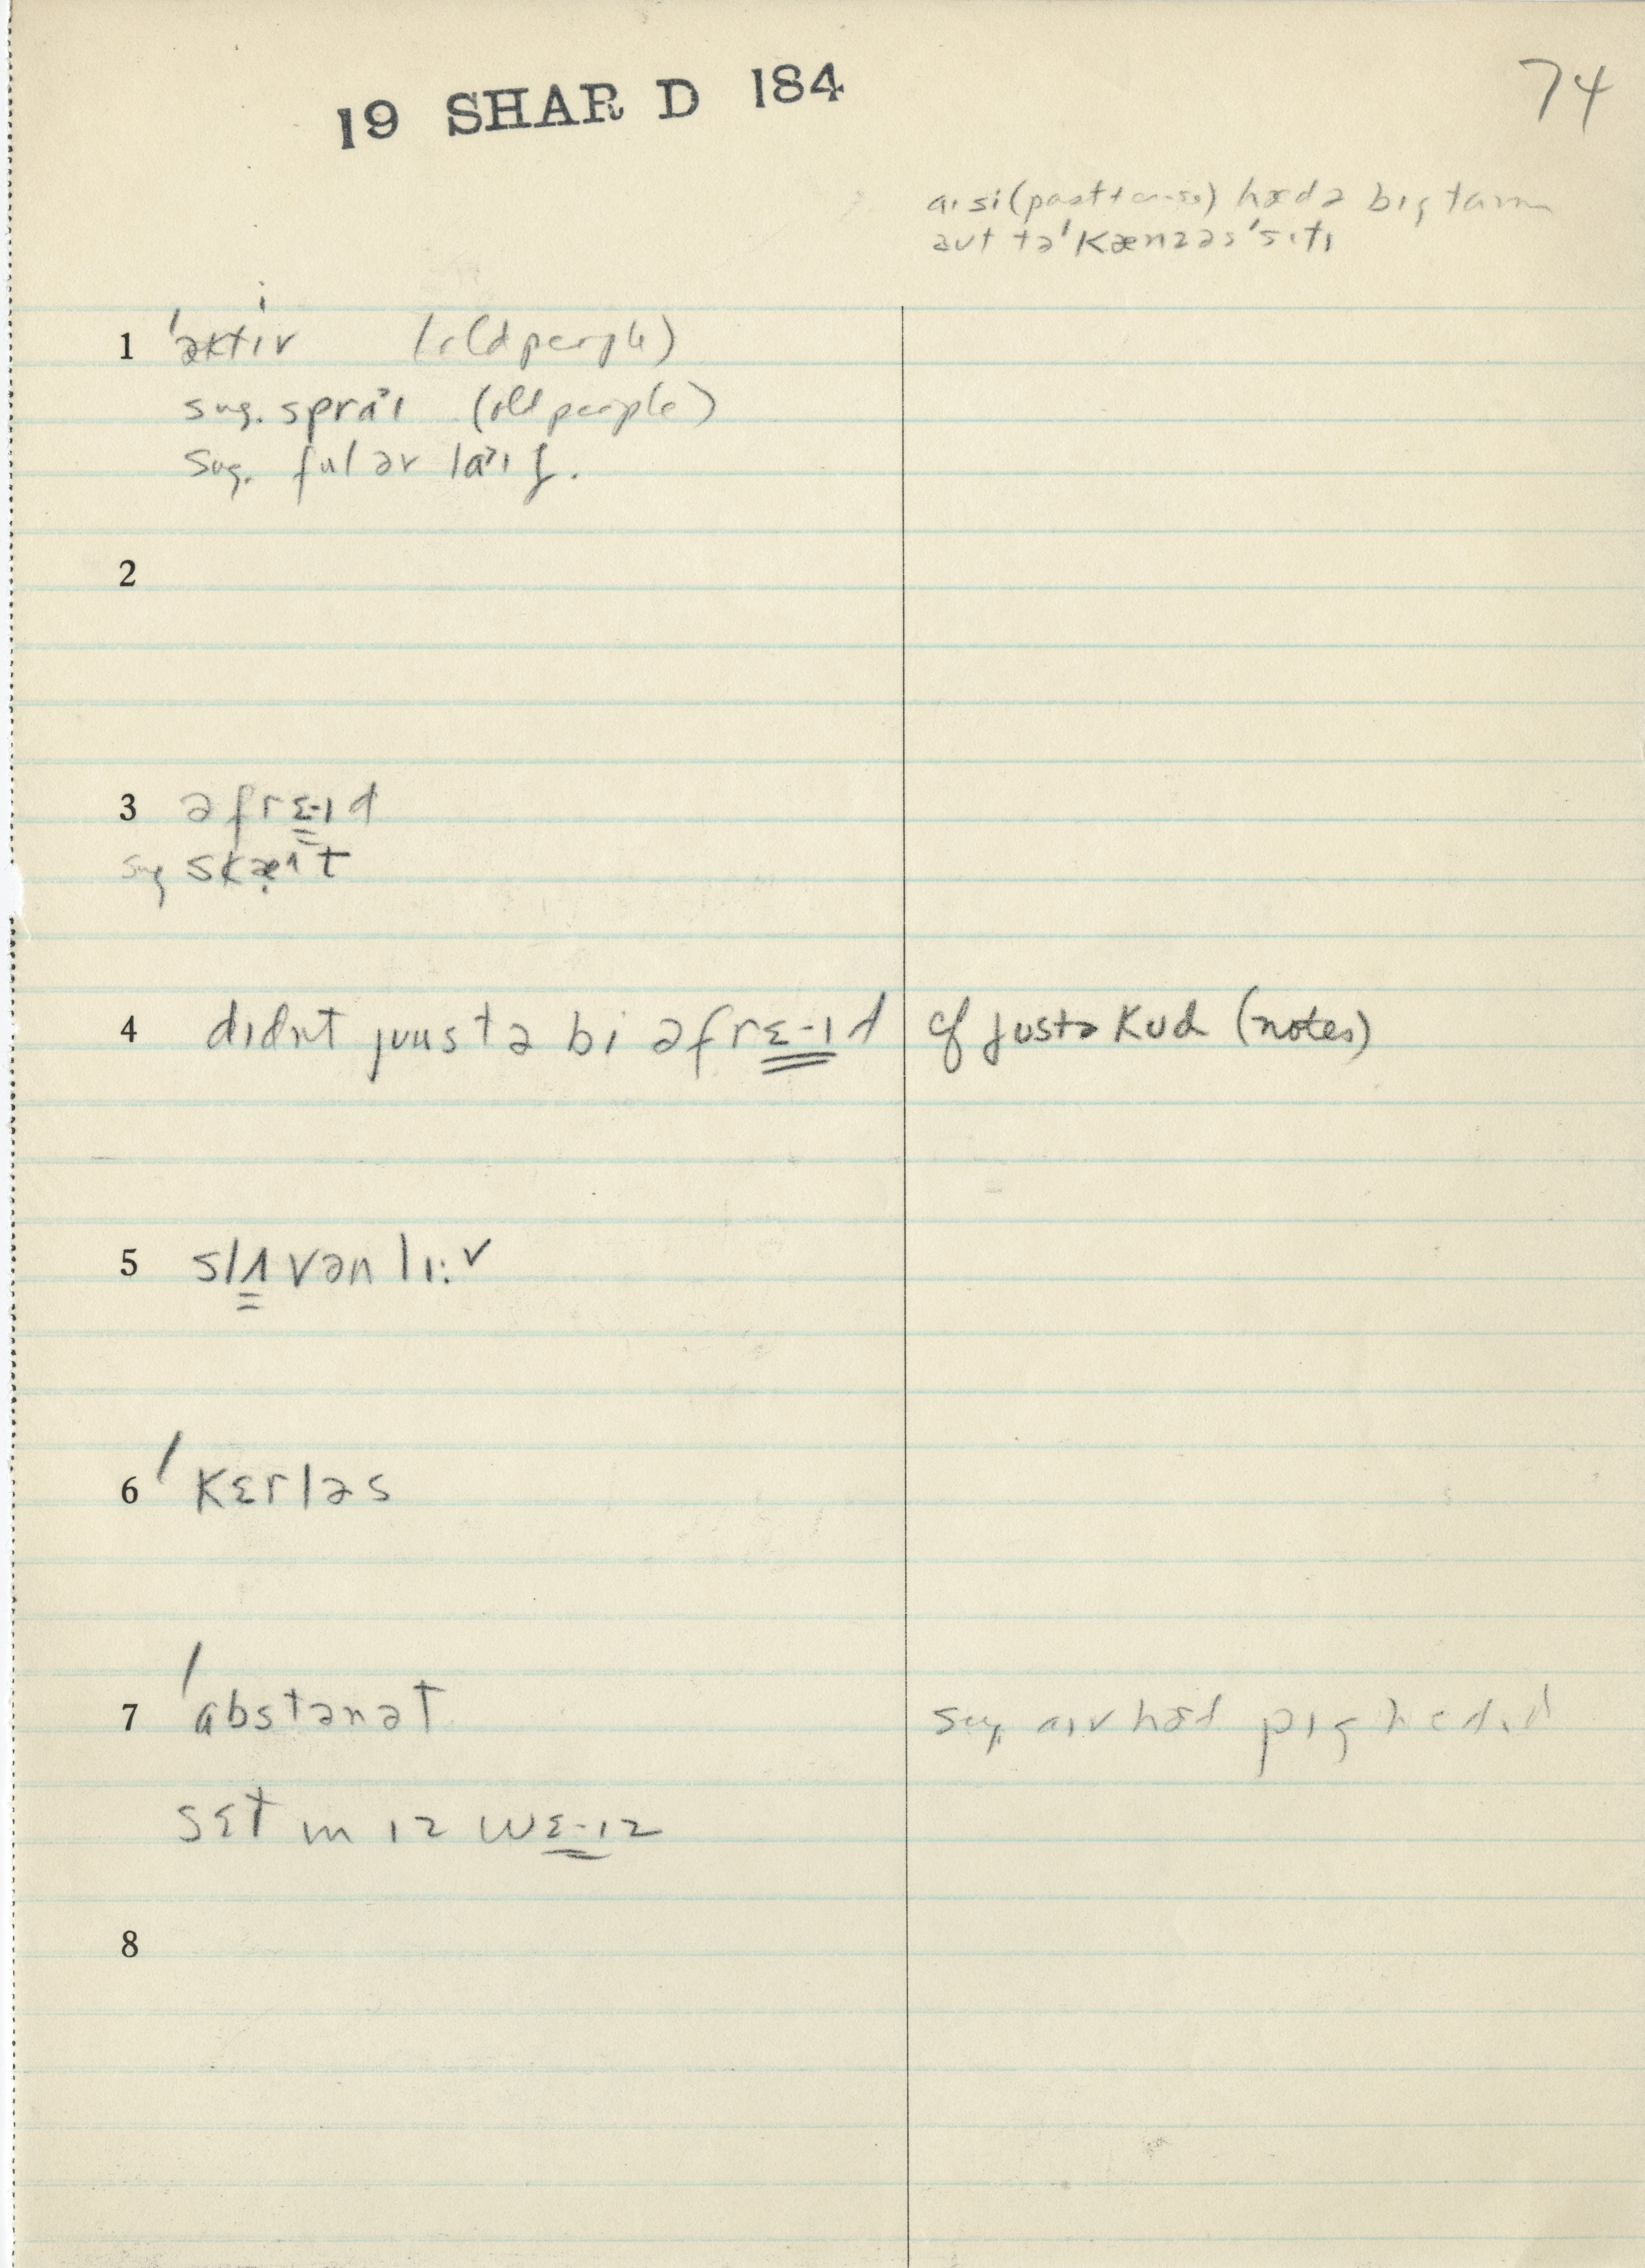 19 SHAR D 184
74
aɪ si (past tense) hæd ə bɪg taɪm
aut tə ˈkænzəs ˈsɪtɪ
1 ˈæktɪv (old people)
sug. spraˀɪ (old people)
sug. ful əv laˀɪf.
2
3 əfrɛ-ɪd
sug skæˀt
4 dɪdnt juustə bi əfrɛ-ɪd cf justə kud (notes)
5 slʌvənlɪ: v
6 ˈkɛrləs
7 ˈabstənət sug. aɪv hæd pɪg hɛdɪd
sɛt ɪn ɪz wɛ-ɪz
8